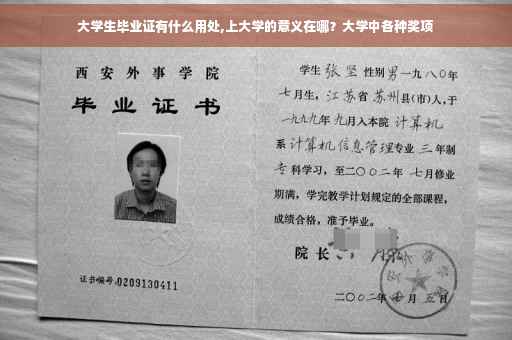 大学生毕业证有什么用处,上大学的意义在哪？大学中各种奖项
西安外事学院
毕业证书
证书编号:0209130411
学生 张坚 性别 男 一九八〇年
七月生, 江苏省 苏州县(市)人,于
一九九九年 九月入本院 计算机
系 计算机信息管理专业 三 年制
专科学习, 至二〇〇二年 七月修业
期满, 学完教学计划规定的全部课程,
成绩合格, 准予毕业。
院长
二〇〇二年 月 五日